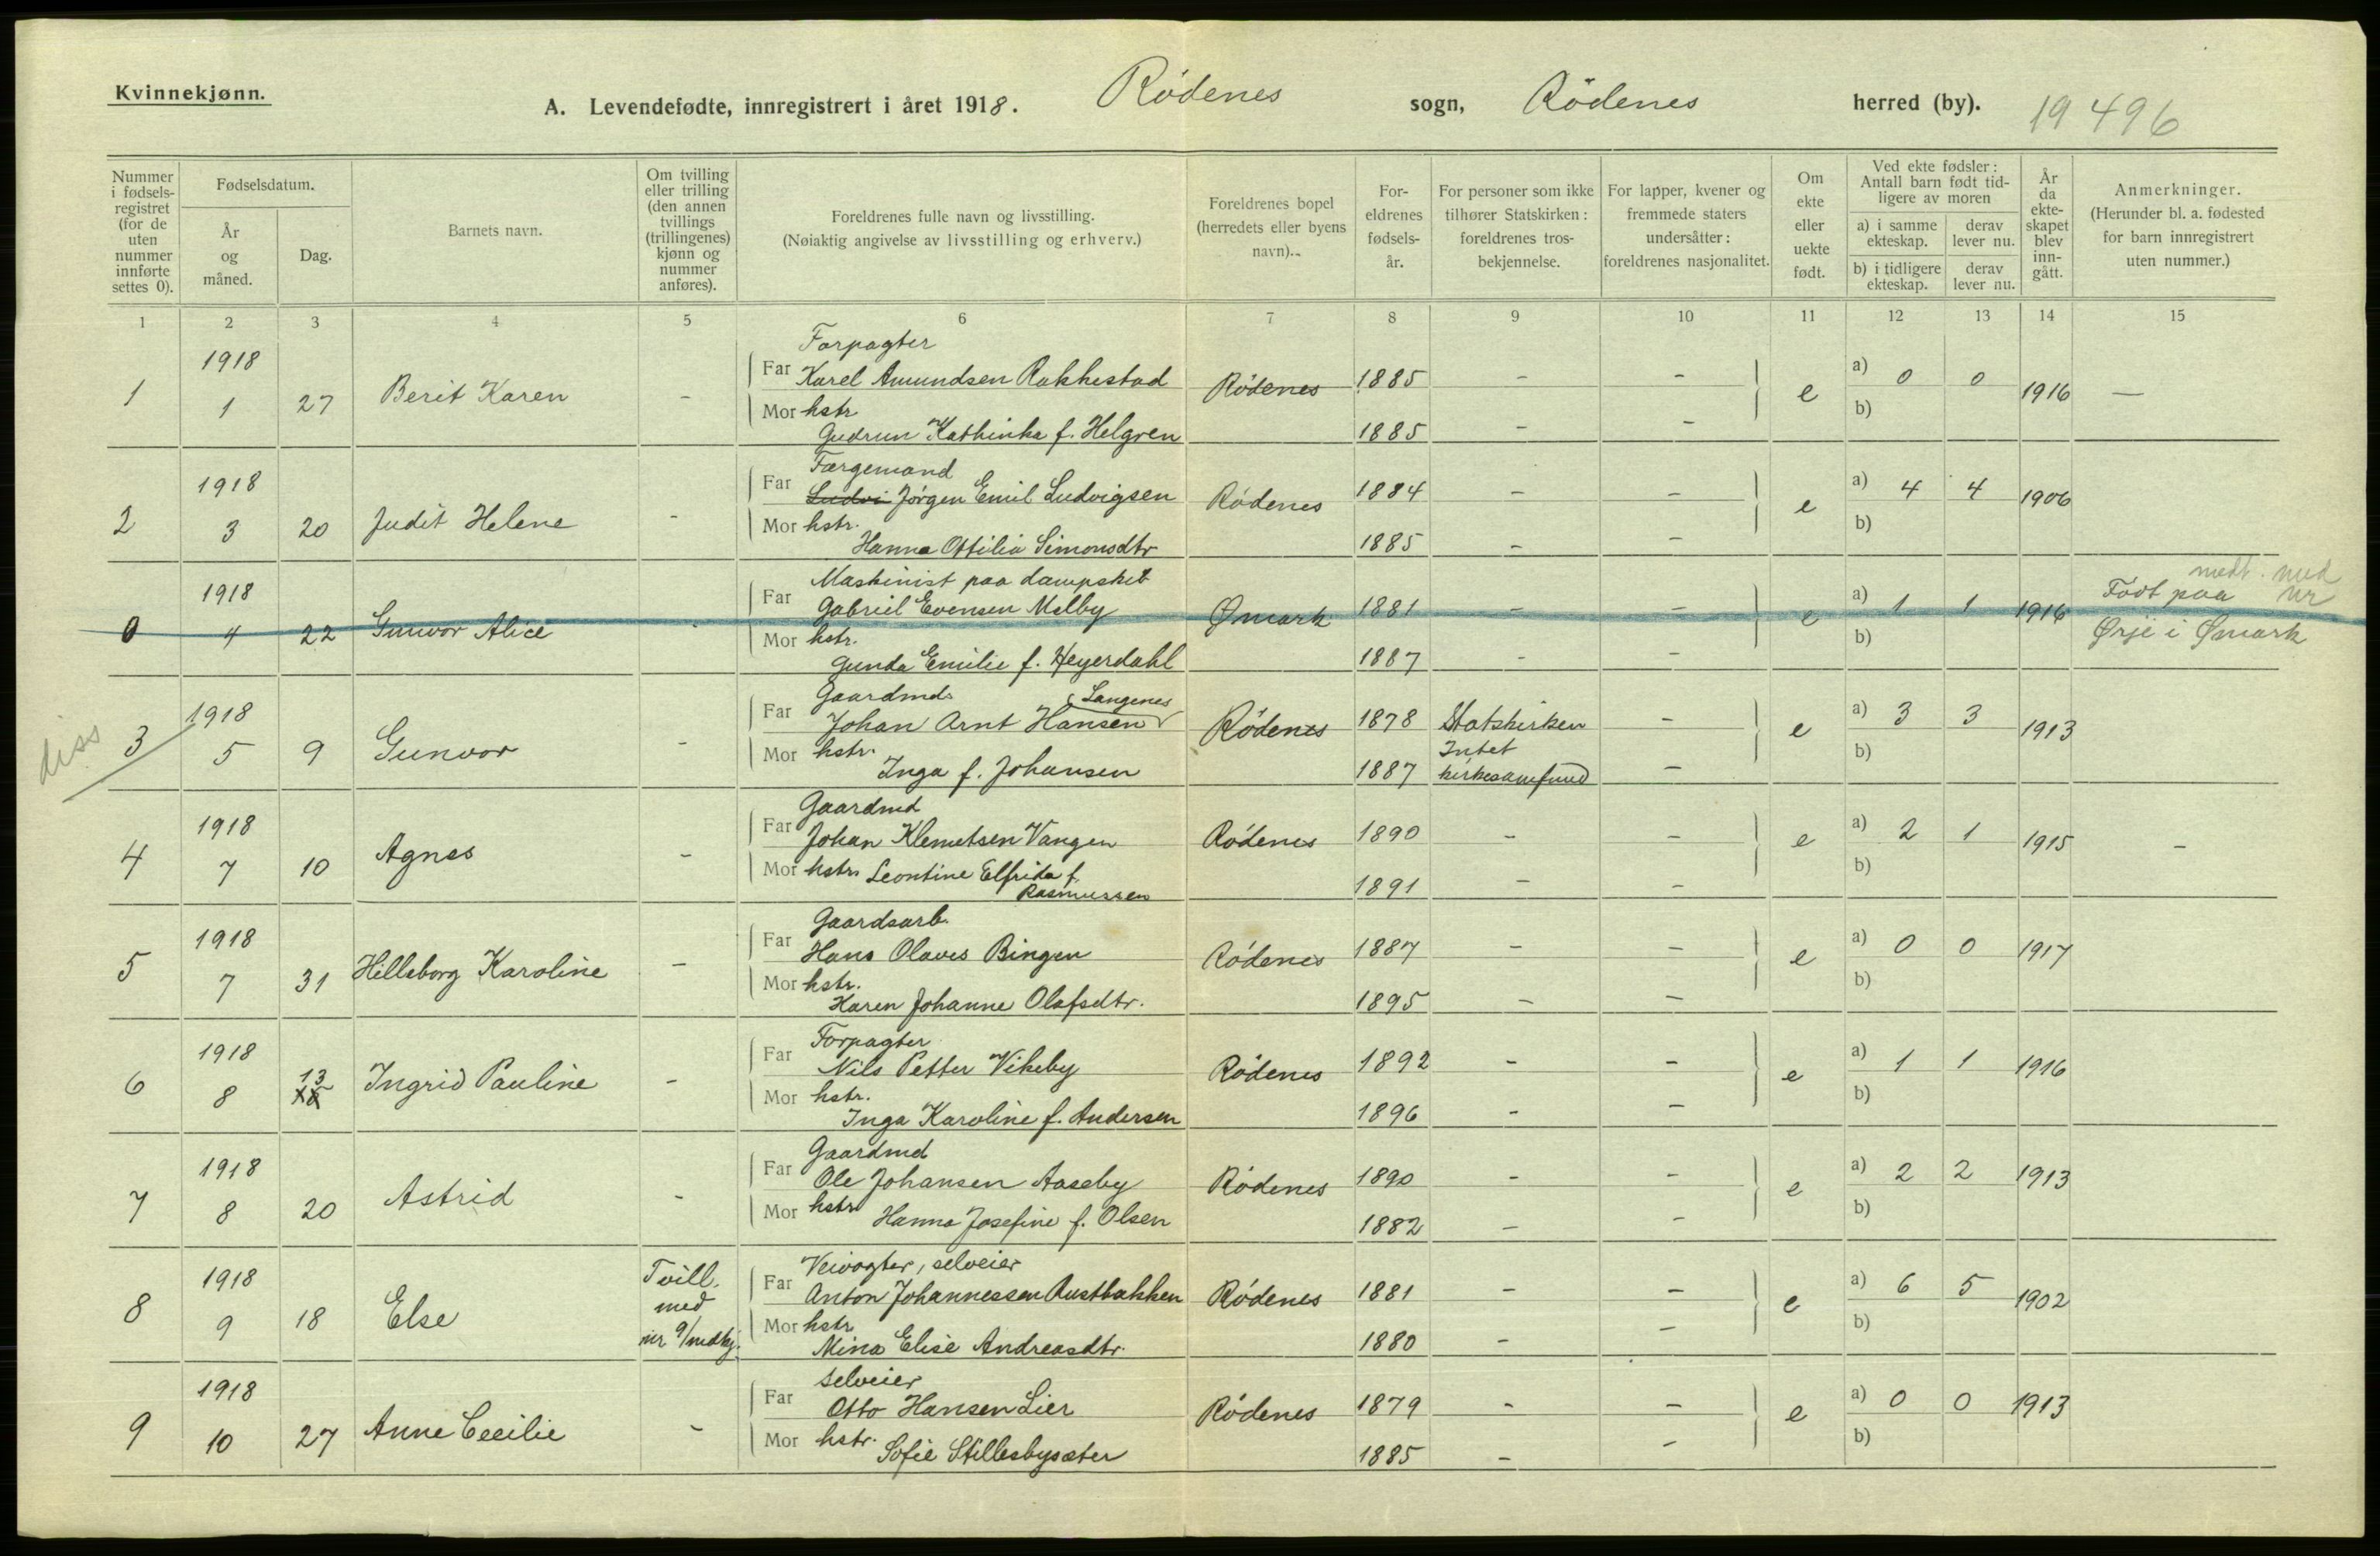 Kvinnekjønn.
A. Levendefødte, innregistrert i året 1918. Rödenes sogn, Rödenes herred (by). 19 496
Nummer i fødsels-registret (for de uten nummer innførte settes 0).
Fødselsdatum.
År og måned.
Dag.
Barnets navn.
Om tvilling eller trilling (den annen tvillings (trillingenes) kjønn og nummer anføres).
Foreldrenes fulle navn og livsstilling.
(Nøiaktig angivelse av livsstilling og erhverv.)
Foreldrenes bopel (herredets eller byens navn).
For-eldrenes fødsels-år.
For personer som ikke tilhører Statskirken: foreldrenes tros-bekjennelse.
For lapper, kvener og fremmede staters undersåtter: foreldrenes nasjonalitet.
Om ekte eller uekte født.
Ved ekte fødsler: Antall barn født tid-ligere av moren
a) i samme ekteskap. derav lever nu.
b) i tidligere ekteskap. derav lever nu.
År da ekte-skapet blev inn-gått.
Anmerkninger. (Herunder bl. a. fødested for barn innregistrert uten nummer.)
1 2 3 4 5 6 7 8 9 10 11 12 13 14 15
Forpagter
1918 Far Karel Amundsen Rakkestad Rödenes 1885 - - a) 0 0
1 1 27 Berit Karen - Mor hstr e b) 1916 —
Gudrun Kathinka f. Helgren 1885 - -
Færgemand
1918 Far Ludvi Jörgen Emil Ludvigsen Rödenes 1884 - - a) 4 4 1906
2 3 20 Judit Helene - Mor hstr. e b)
Hanna Ottilia Simonsdtr 1885 - -
Maskinist paa dampskib medt. med nr
1918 Far Gabriel Evensen Melby Ømark 1881 - - a) 1 1 1916 Födt paa
0 4 22 Gunvor Alice - Mor hstr. e b) Ørje i Ømark
Gunda Emilie f. Heyerdahl 1887 - -
Gaardmd. Langenes
1918 Far Johan Arnt Hansen Rödenes 1878 Statskirken - a) 3 3 1913
diss 3 5 9 Gunvor - Mor hstr. Intet e b)
Inga f. Johansen 1887 kirkesamfund -
Gaardmd
1918 Far Johan Klemetsen Vangen Rödenes 1890 - - a) 2 1 1915 -
4 7 10 Agnes - Mor hstr. Leontine Elfrida f. e b)
Rasmussen 1891 - -
Gaardsarb.
1918 Far Hans Olaves Bingen Rödenes 1887 - - a) 0 0 1917
5 7 31 Hilleborg Karoline - Mor hstr. e b)
Karen Johanne Olafsdtr. 1895 - -
Forpagter
1918 Far Nils Petter Vikeby Rödenes 1892 - - a) 1 1 1916
6 8 13 Ingrid Pauline - Mor hstr. e b)
Inga Karoline f. Andersen 1896 - -
Gaardmd
1918 Far Ole Johansen Aaseby Rödenes 1890 - - a) 2 2 1913
7 8 20 Astrid - Mor hstr e b)
Hanna Josefine f. Olsen 1882 - -
Tvill. Veivogter, selveier
1918 med Far Anton Johannessen Rustbakken Rödenes 1881 - - a) 6 5 1902
8 9 18 Else nr 9/mdkj. Mor hstr e b)
Mina Elise Andreasdtr. 1880 - -
selveier
1918 Far Otto Hansen Lier Rödenes 1879 - - a) 0 0 1913
9 10 27 Anne Cecilie - Mor hstr. e b)
Sofie Stillesbysæter 1885 - -